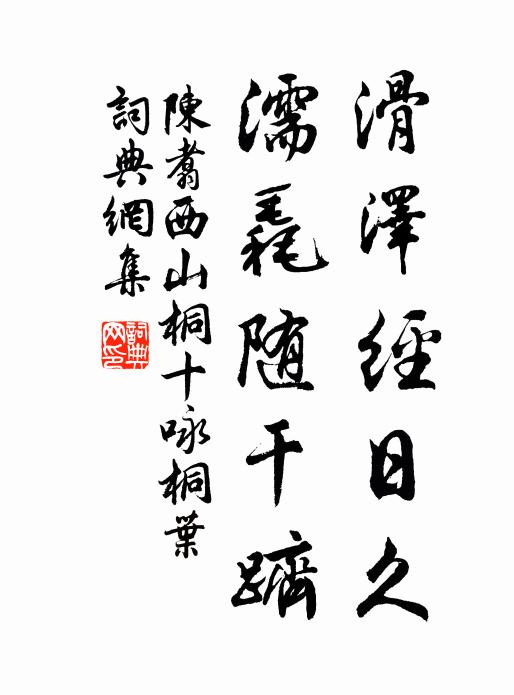 滑澤經日久
濡毳隨干躋
陳翥西山桐十咏桐葉
詞典網集
詞典網印